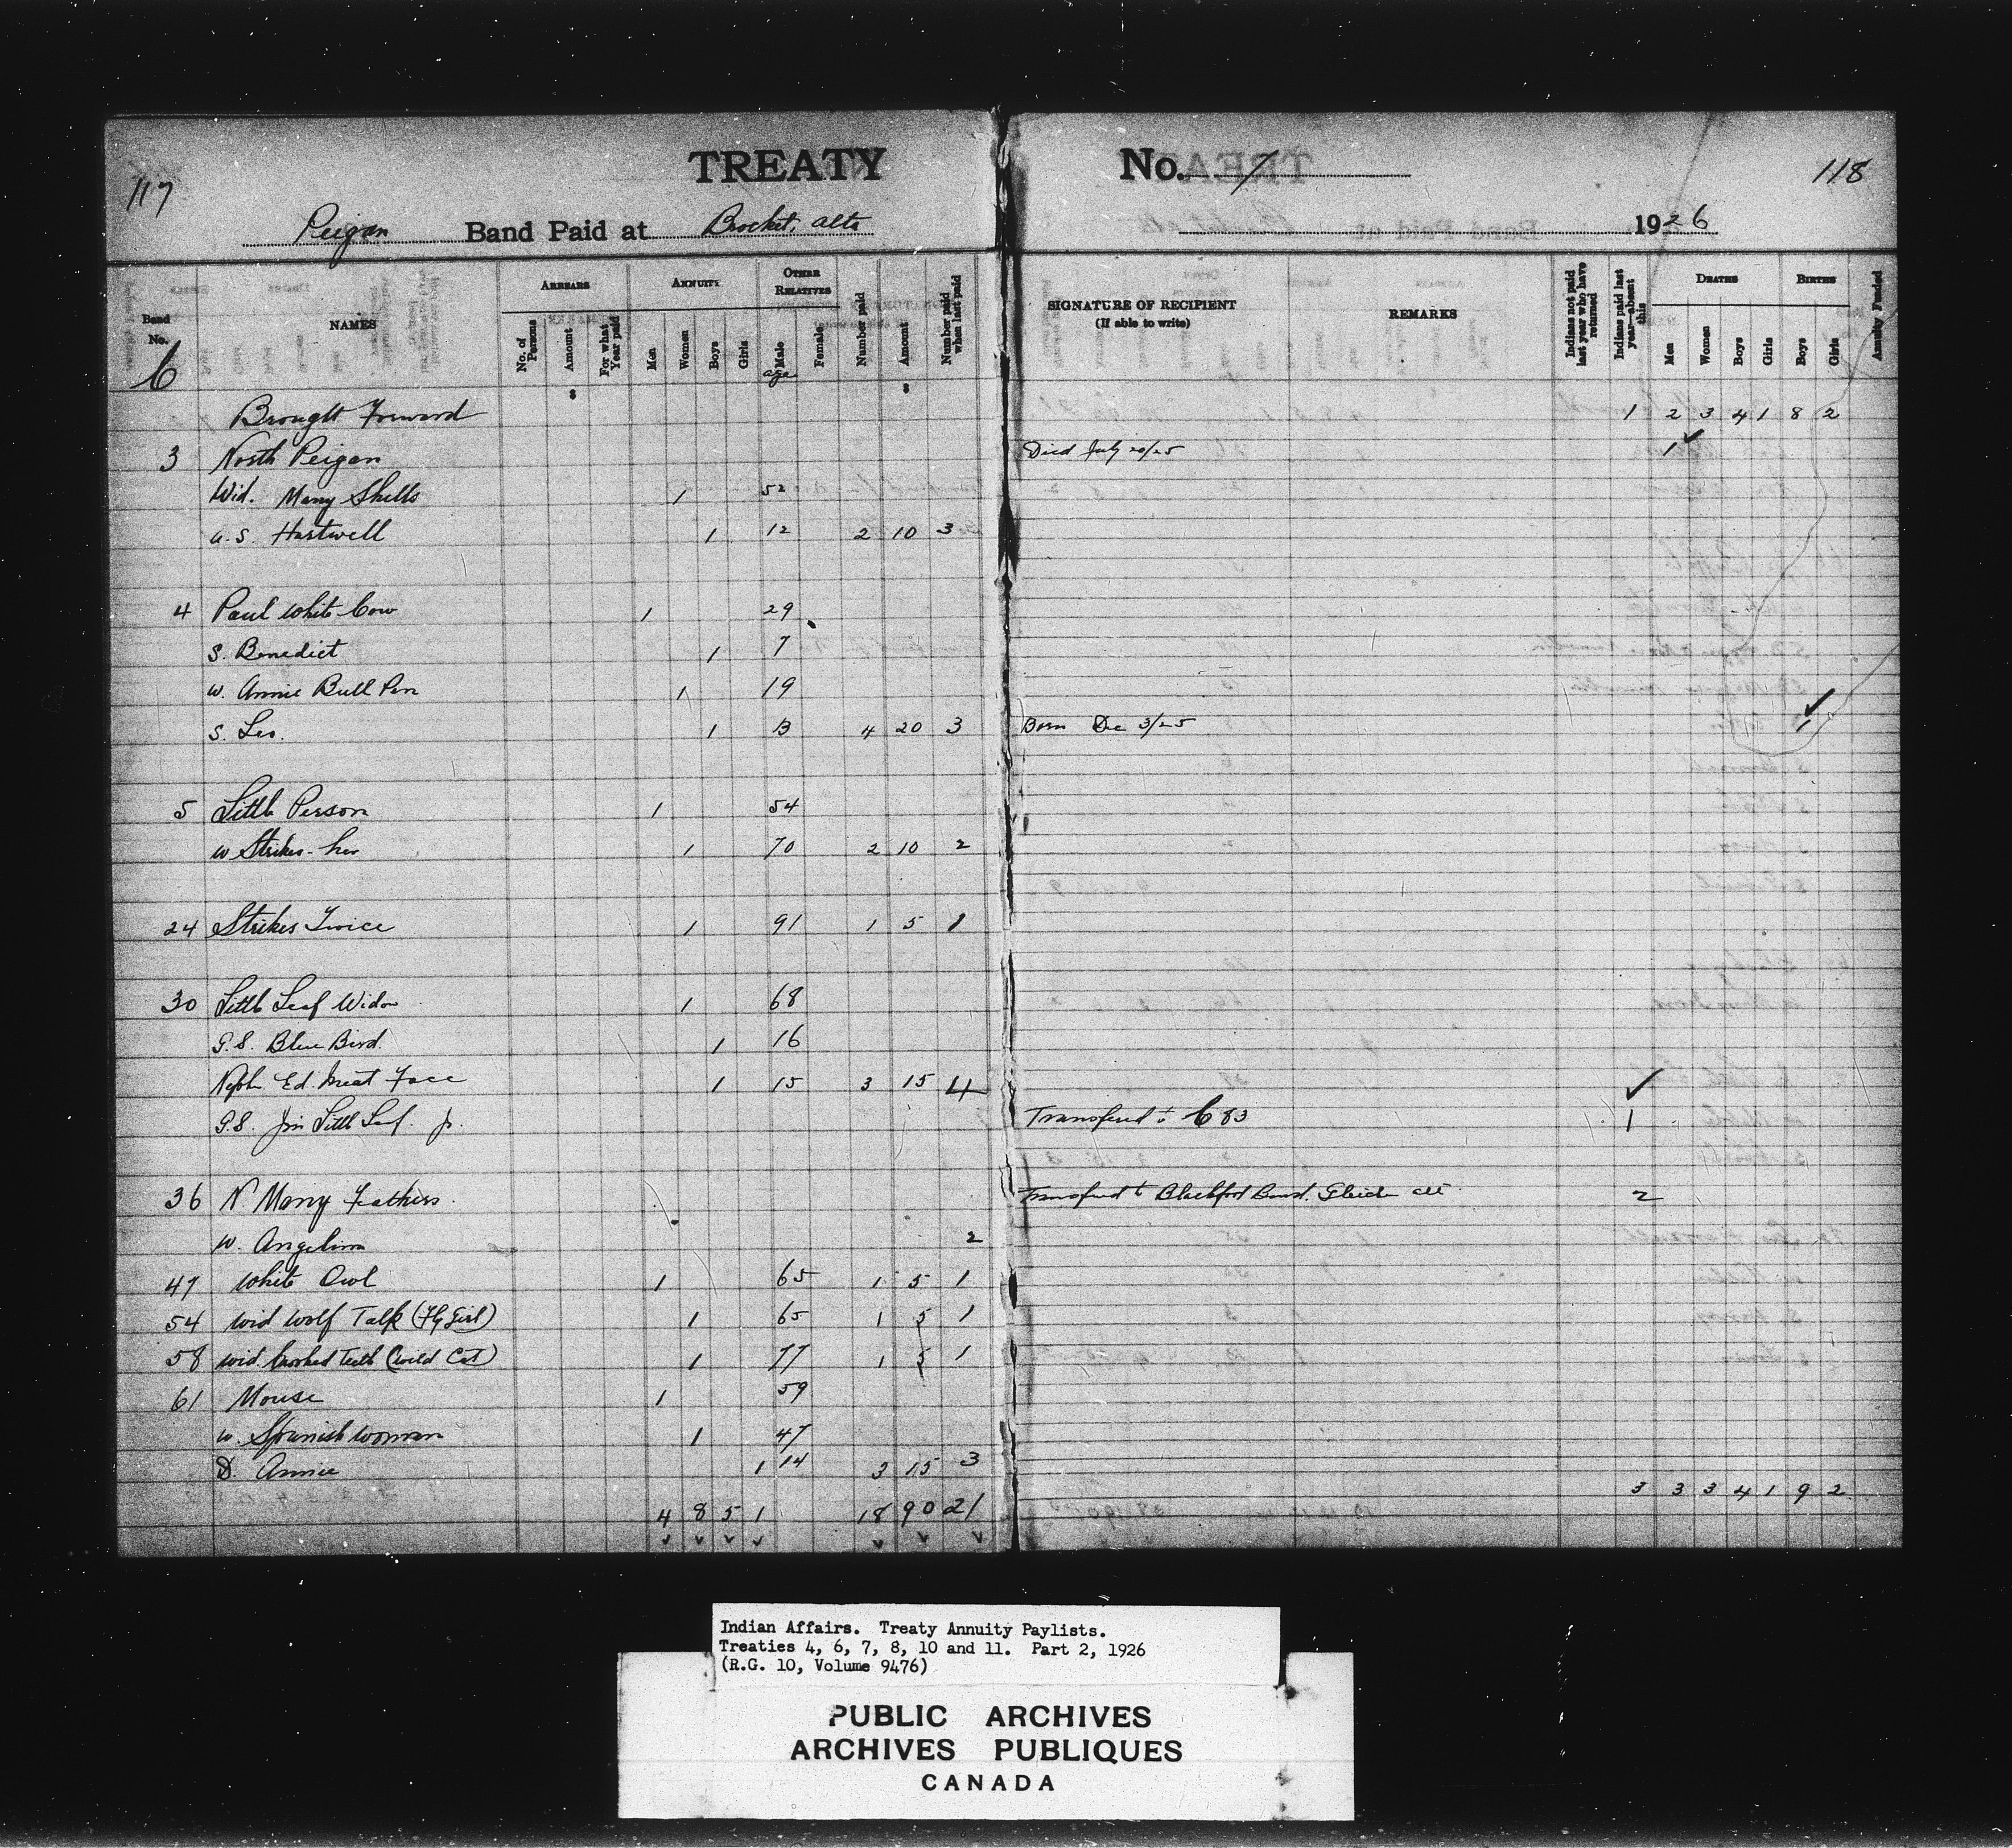 117
TREATY
No. 7
118
Peigan Band Paid at Brocket, Alta
1926
Band No. NAMES ARREARS No. of Persons Amount For what Year paid ANNUITY Men Women Boys Girls OTHER RELATIVES Male Female Number paid Amount Number paid when last paid SIGNATURE OF RECIPIENT (If able to write) REMARKS Indians not paid last year who have returned Indians paid last year—absent this DEATHS Men Women Boys Girls BIRTHS Boys Girls Annuity Funded
6 age $ $
Brought Forward 1 2 3 4 1 8 2
3 North Peigan Died July 20/25 1
Wid. Many Shells 1 52
a.s. Hartwell 1 12 2 10 3
4 Paul White Cow 1 29
S. Benedict 1 7
w. Annie Bull Pen 1 19
S. Leo. 1 B 4 20 3 Born Dec 3/25 1
5 Little Person 1 54
w Strikes-her 1 70 2 10 2
24 Strikes Twice 1 91 1 5 1
30 Little Leaf Widow 1 68
G.S. Blue Bird. 1 16
Neph. Ed. Meat Face 1 15 3 15 4
G.S. Jim Little Leaf. Jr. Transferred to C 83 1
36 N. Many Feathers. Transferred to Blackfoot Band. Gleichen Alt 2
W. Angelina 2
47 White Owl 1 65 1 5 1
54 Wid Wolf Talk (Fly Girl) 1 65 1 5 1
58 Wid. Crooked Teeth (Wild Cat) 1 77 1 5 1
61 Mouse 1 59
w. Spanish Woman 1 47
D. Annie 1 14 3 15 3
4 8 5 1 18 90 21 3 3 3 4 1 9 2
Indian Affairs. Treaty Annuity Paylists.
Treaties 4, 6, 7, 8, 10 and 11. Part 2, 1926
(R.G. 10, Volume 9476)
PUBLIC ARCHIVES
ARCHIVES PUBLIQUES
CANADA